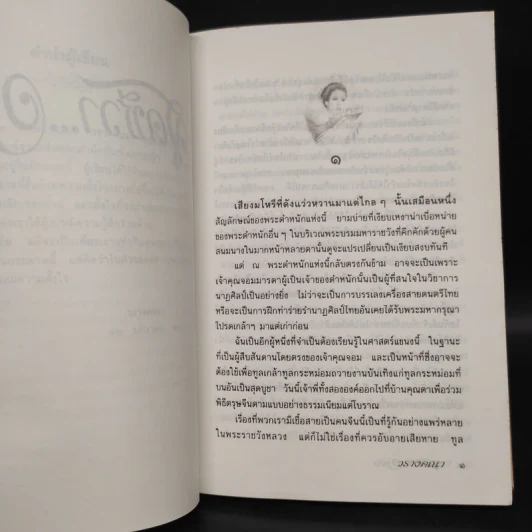 ๑
เสียงมโหรีที่ดังแว่วหวานมาแต่ไกล ๆ นั้นเสมือนหนึ่ง
สัญลักษณ์ของพระตำหนักแห่งนี้ ยามบ่ายที่เงียบเหงาน่าเบื่อหน่าย
ของพระตำหนักอื่น ๆ ในบริเวณพระบรมมหาราชวังที่คึกคักด้วยผู้คน
สนมนางในมากหน้าหลายตานั้นดูจะแปรเปลี่ยนเป็นเงียบสงบทันที
แต่ ณ พระตำหนักแห่งนี้กลับตรงกันข้าม อาจจะเป็นเพราะ
เจ้าคุณจอมมารดาผู้เป็นเจ้าของตำหนักนั้นเป็นผู้ที่สนใจในวิชาการ
นาฏศิลป์เป็นอย่างยิ่ง ไม่ว่าจะเป็นการบรรเลงเครื่องสายดนตรีไทย
หรือจะเป็นการฝึกท่าร่ายรำนาฏศิลป์ไทยอันเคยได้รับพระมหากรุณา
โปรดเกล้าๆ มาแต่เก่าก่อน
ฉันเป็นอีกผู้หนึ่งที่จำเป็นต้องเรียนรู้ในศาสตร์แขนงนี้ ในฐานะ
ที่เป็นผู้สืบสันดานโดยตรงของเจ้าคุณจอม และเป็นหน้าที่ซึ่งอาจจะ
ต้องใช้เพื่อทูลเกล้าทูลกระหม่อมถวายงานบันเทิงแก่ทูลกระหม่อมที่
บนอันเป็นสุดบูชา วันนี้เจ้าพี่ทั้งสององค์ออกไปที่บ้านคุณตาเพื่อร่วม
พิธีตรุษจีนตามแบบอย่างธรรมเนียมแต่โบราณ
เรื่องที่พวกเรามีเชื้อสายเป็นคนจีนนี้เป็นที่รู้กันอย่างแพร่หลาย
ในพระราชวังหลวง แต่ก็ไม่ใช่เรื่องที่ควรอับอายเสียหาย ทูล
๑